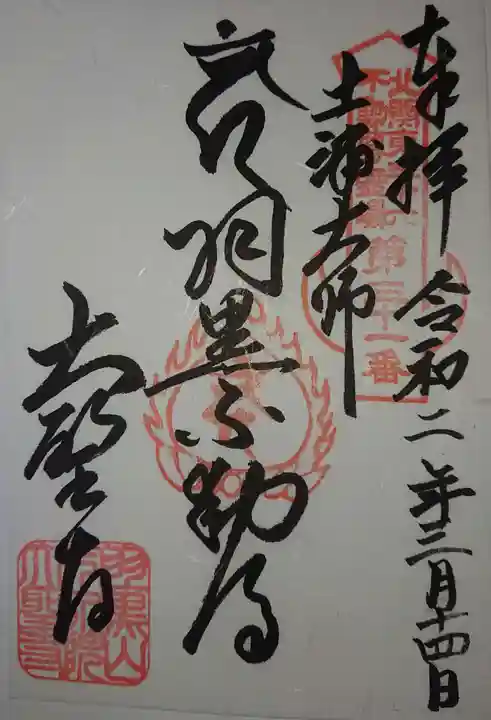 奉拝 令和二年三月十四日
北関東三十六
不動尊霊場
第三十一番
土浦大師
羽黒不動尊
大聖寺
羽黒山
大聖寺